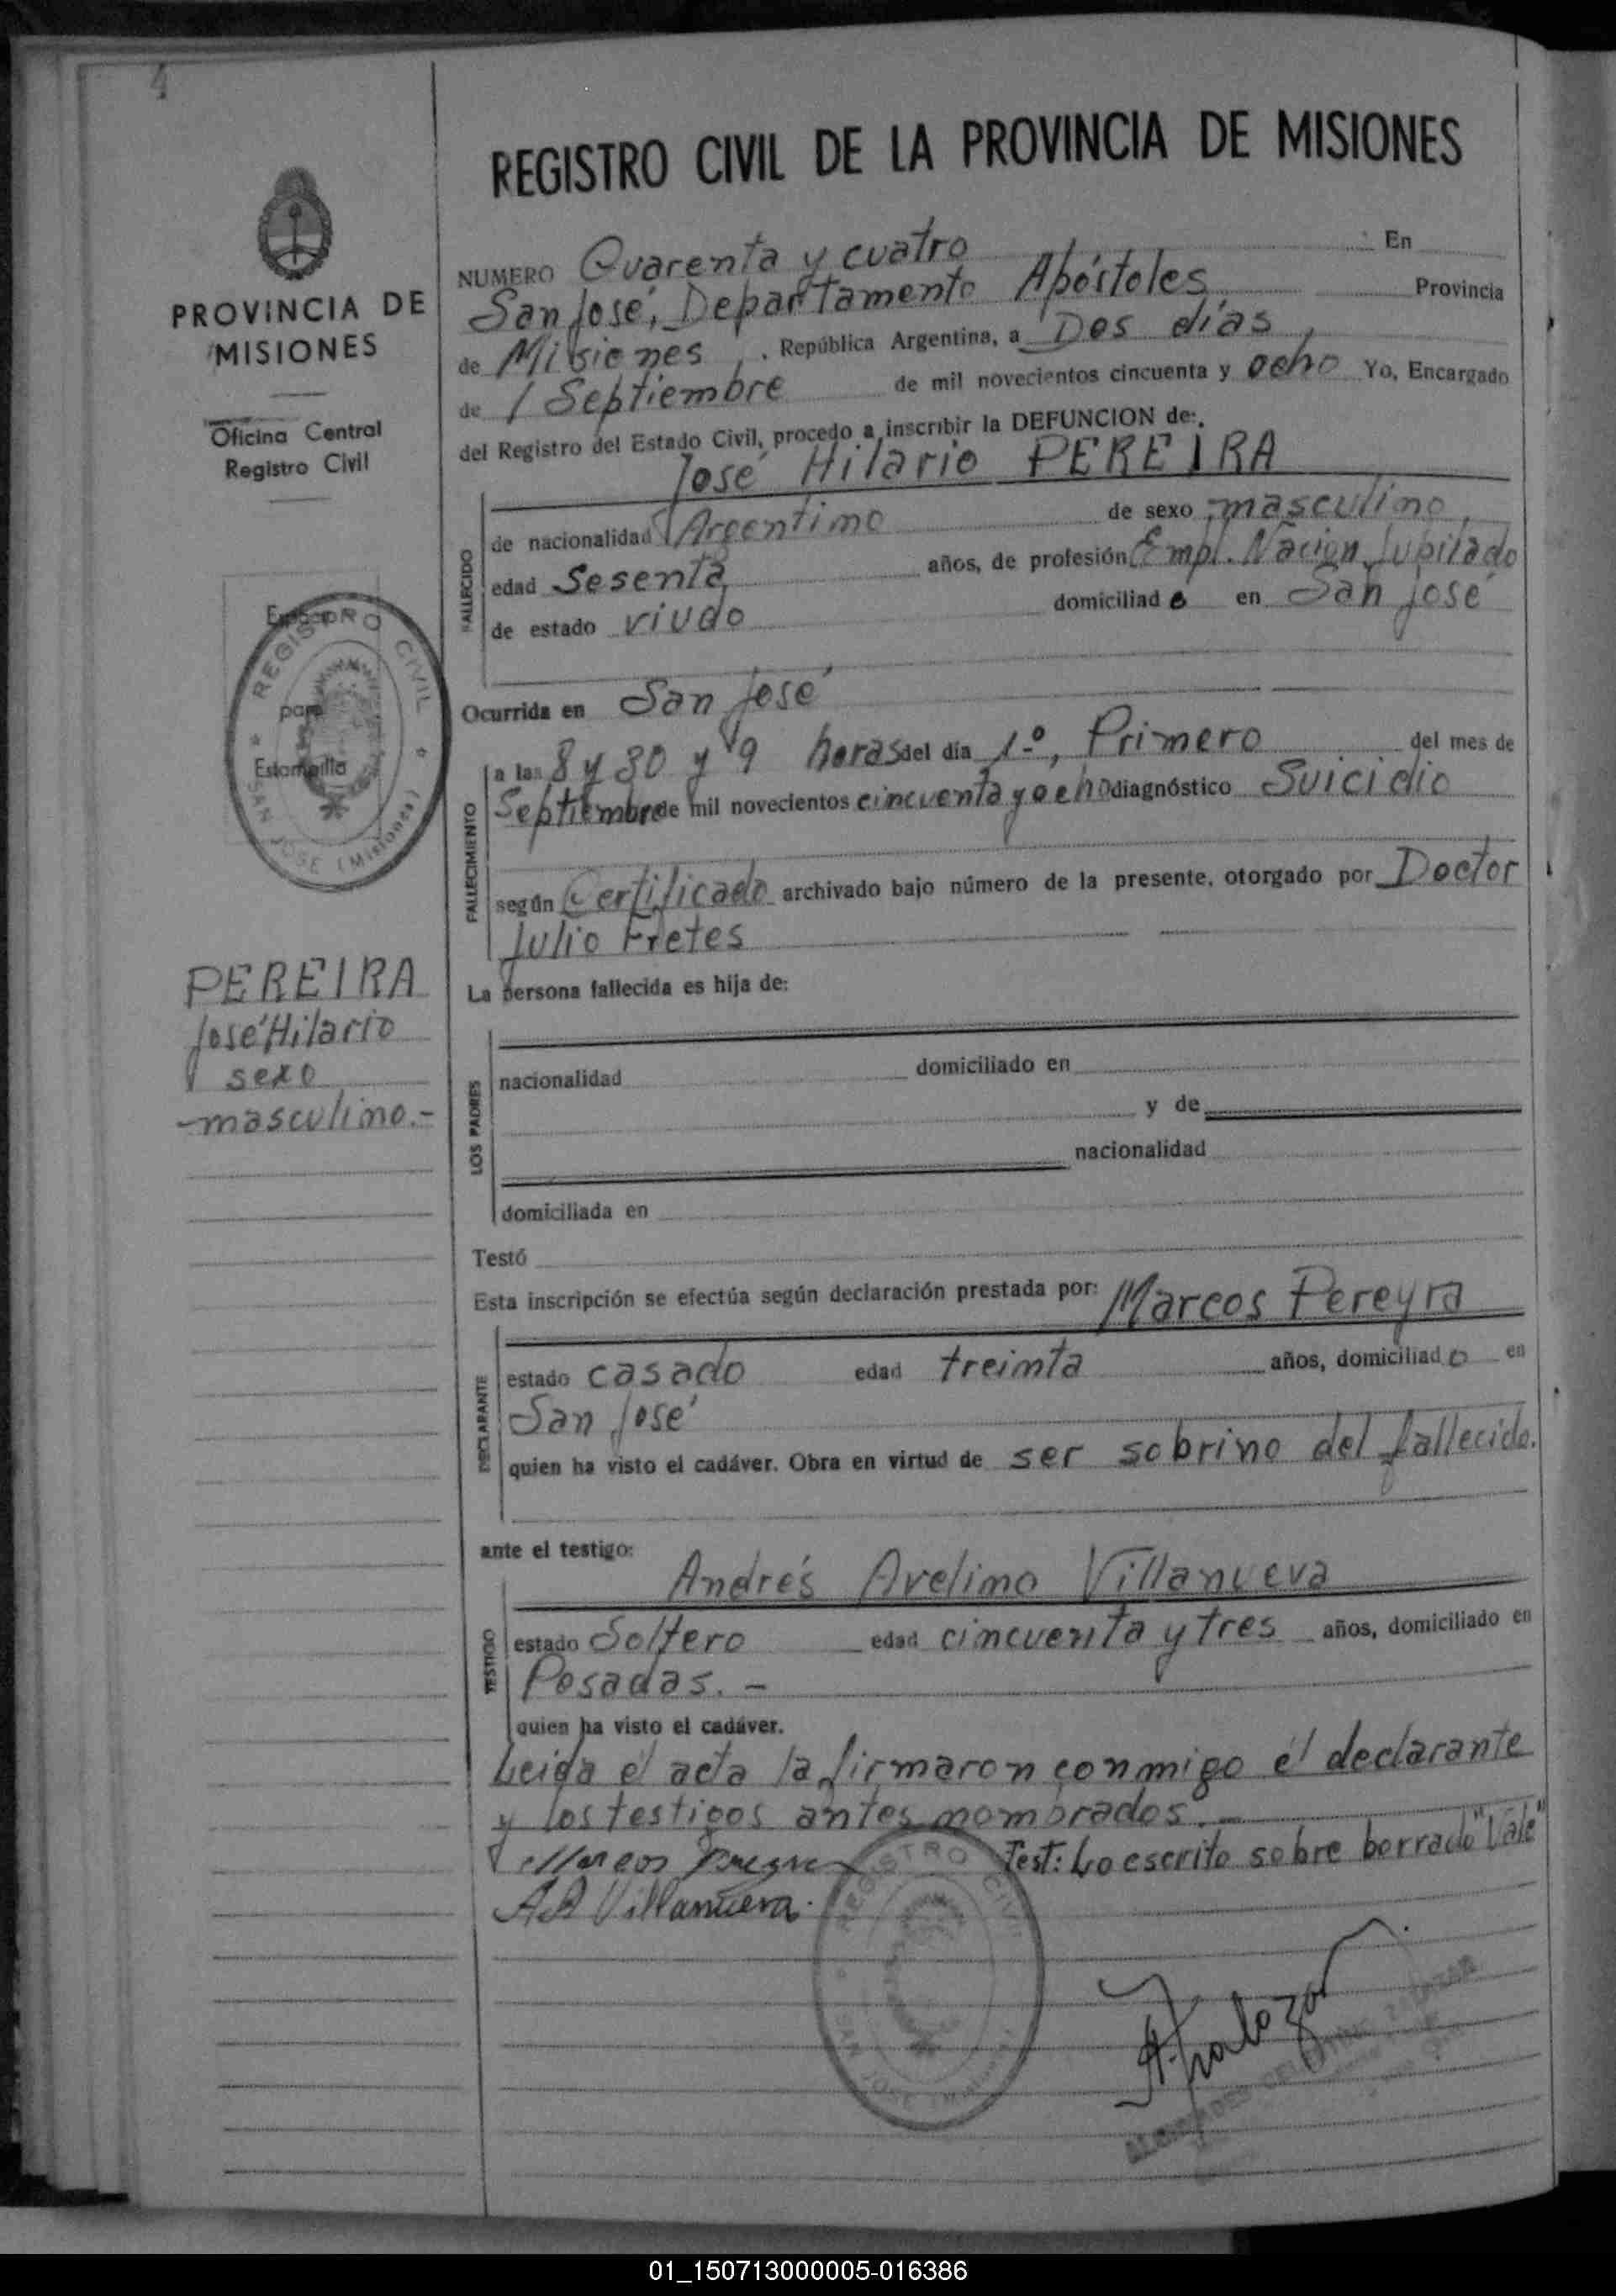 4
REGISTRO CIVIL DE LA PROVINCIA DE MISIONES
PROVINCIA DE
MISIONES
Oficina Central
Registro Civil
Espacio
para
Estampilla
REGISTRO CIVIL
* SAN JOSE (Misiones) *
PEREIRA
José Hilario
sexo
-masculino.-
NUMERO Cuarenta y cuatro En
San José, Departamento Apóstoles Provincia
de Misiones, . República Argentina, a Dos días,
de / Septiembre de mil novecientos cincuenta y ocho Yo, Encargado
del Registro del Estado Civil, procedo a inscribir la DEFUNCION de:
José Hilario PEREIRA
FALLECIDO
de nacionalidad Argentino de sexo masculino,
edad Sesenta años, de profesión Empl. Nación Jubilado
de estado viudo domiciliado en San José
Ocurrida en San José
FALLECIMIENTO
a las 8 y 30 y 9 horas del día 1.º, Primero del mes de
Septiembre de mil novecientos cincuenta y ocho diagnóstico Suicidio
según Certificado archivado bajo número de la presente, otorgado por Doctor
Julio Fretes
La persona fallecida es hija de:
LOS PADRES
nacionalidad domiciliado en
y de
nacionalidad
domiciliada en
Testó
Esta inscripción se efectúa según declaración prestada por: Marcos Pereyra
DECLARANTE
estado casado edad treinta años, domiciliado en
San José
quien ha visto el cadáver. Obra en virtud de ser sobrino del fallecido.
ante el testigo:
Andrés Avelino Villanueva
TESTIGO
estado Soltero edad cincuenta y tres años, domiciliado en
Posadas. -
quien ha visto el cadáver.
Leida el acta la firmaron conmigo el declarante
y los testigos antes nombrados. -
Marcos Test: Lo escrito sobre borrado "Vale"
A A Villanueva.
REGISTRO CIVIL
SAN JOSE (Misiones)
01_150713000005-016386